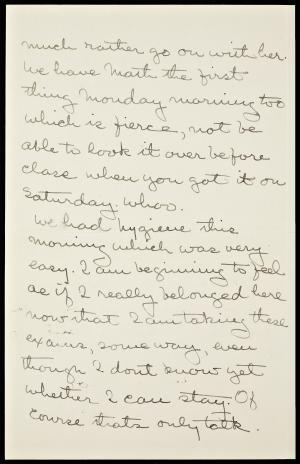 much rather go on with her.
We have Math the first
thing Monday morning too
which is fierce, not be
able to look it over before
class when you got it on
Saturday. Whoo.
We had hygiene this
morning which was very
easy. I am beginning to feel
as if I really belonged here
now that I am taking these
exams, some way, even
though I dont know yet
whether I can stay. Of
course thats only talk.